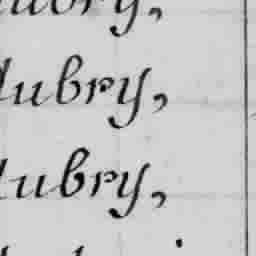 Aubry,
Aubry,
Aubry,